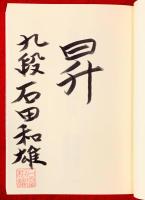 昇
九段 石田和雄